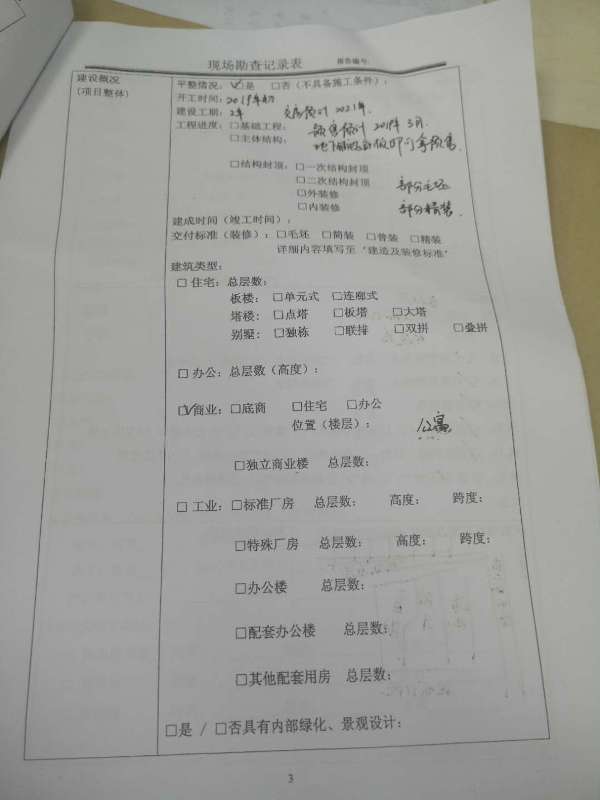 现场勘查记录表 报告编号:
建设概况
(项目整体)
平整情况: ☑是 □否(不具备施工条件):
开工时间: 2019年初
建设工期: 2年 交房预计2021年.
工程进度: □基础工程: 预售预计 2019年3月.
□主体结构:
□结构封顶: □一次结构封顶
□二次结构封顶 部分毛坯
□外装修
□内装修 部分精装.
建成时间(竣工时间):
交付标准(装修): □毛坯 □简装 □普装 □精装
详细内容填写至“建造及装修标准”
建筑类型:
□住宅: 总层数:
板楼: □单元式 □连廊式
塔楼: □点塔 □板塔 □大塔
别墅: □独栋 □联排 □双拼 □叠拼
□办公: 总层数(高度):
☑商业: □底商 □住宅 □办公
位置(楼层): 公寓
□独立商业楼 总层数:
□工业: □标准厂房 总层数: 高度: 跨度:
□特殊厂房 总层数: 高度: 跨度:
□办公楼 总层数:
□配套办公楼 总层数:
□其他配套用房 总层数:
□是 / □否具有内部绿化、景观设计:
3